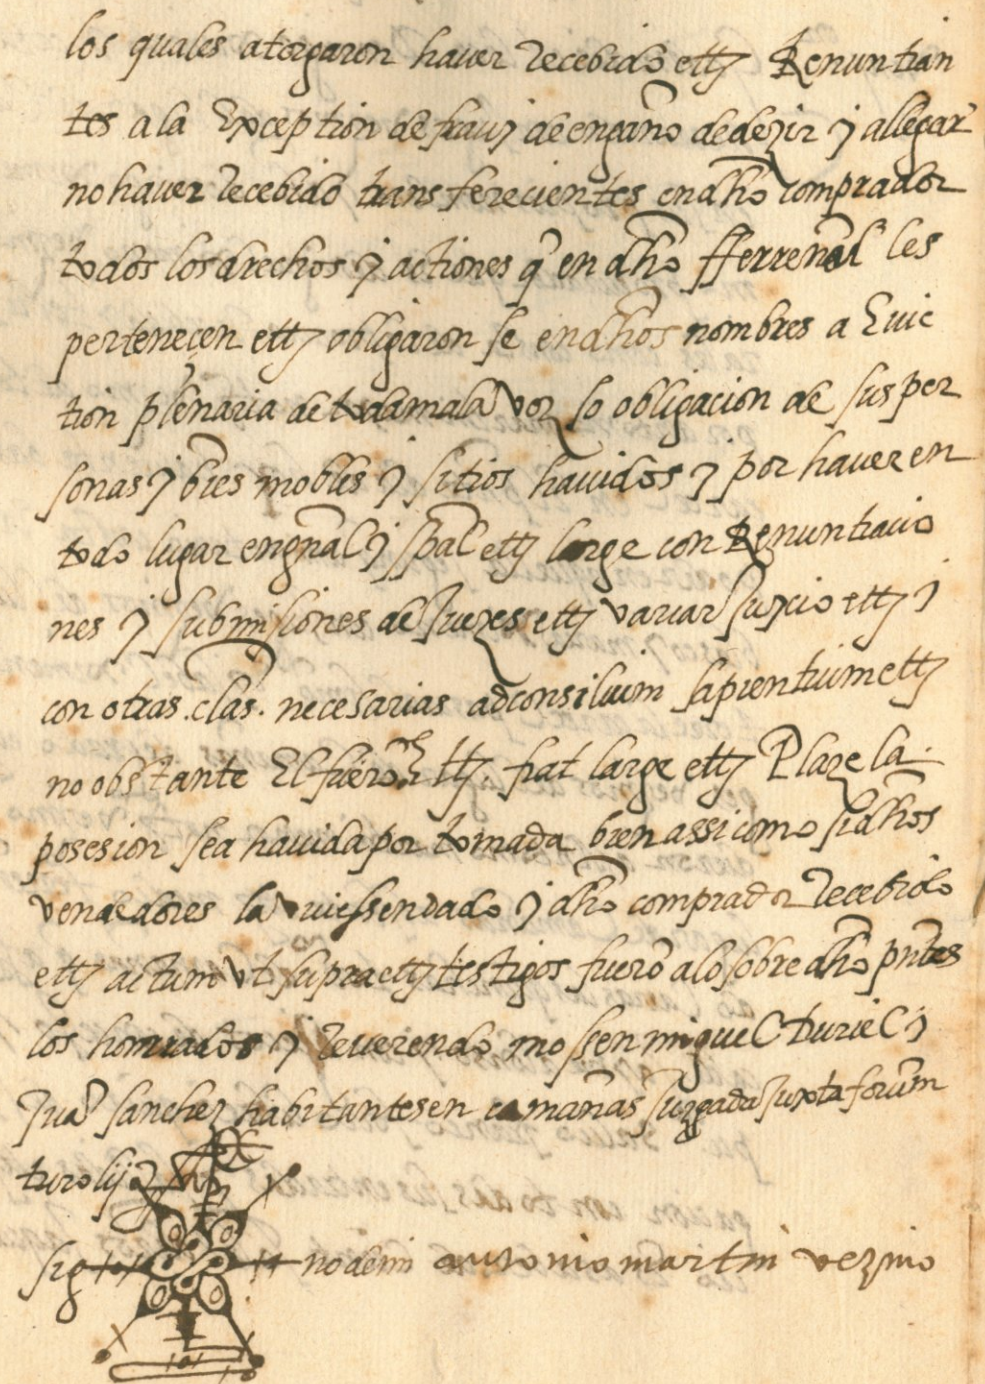 los quales atorgaron haver recebido ettz Renuntian
tes a la Exception de frau y de engaño de dezir y allegar
no haver recebido transferecientes en dho comprador
todos los drechos y actiones q̃ en dho fferrenal les
perteneçen ettz obligaron se en dhos nombres a Evic
tion plenaria de toda mala voz so obligacion de sus per
sonas y bñes mobles y sitios havidos y por haver en
todo lugar en gñal y spãl ettz large con Renuntiatio
nes y submisiones de Juezes ettz variar Juycio ettz y
con otras .clas. necesarias ad consilium sapientium ettz
no obstante El fuero ttz. fiat large ettz Plaze la
posesion sea havida por tomada bien assi como si dhos
vendedores la viessen dado y dho comprador recebido
ettz actum ut supra ettz testigos fuerõ a lo sobre dho pñtes
los honrados y reverendo mossen miguel Curiel y
Juã sanchez habitantes en camañas Jurgada Juxta forum
turolij
sig no de mi antonio martin vezino